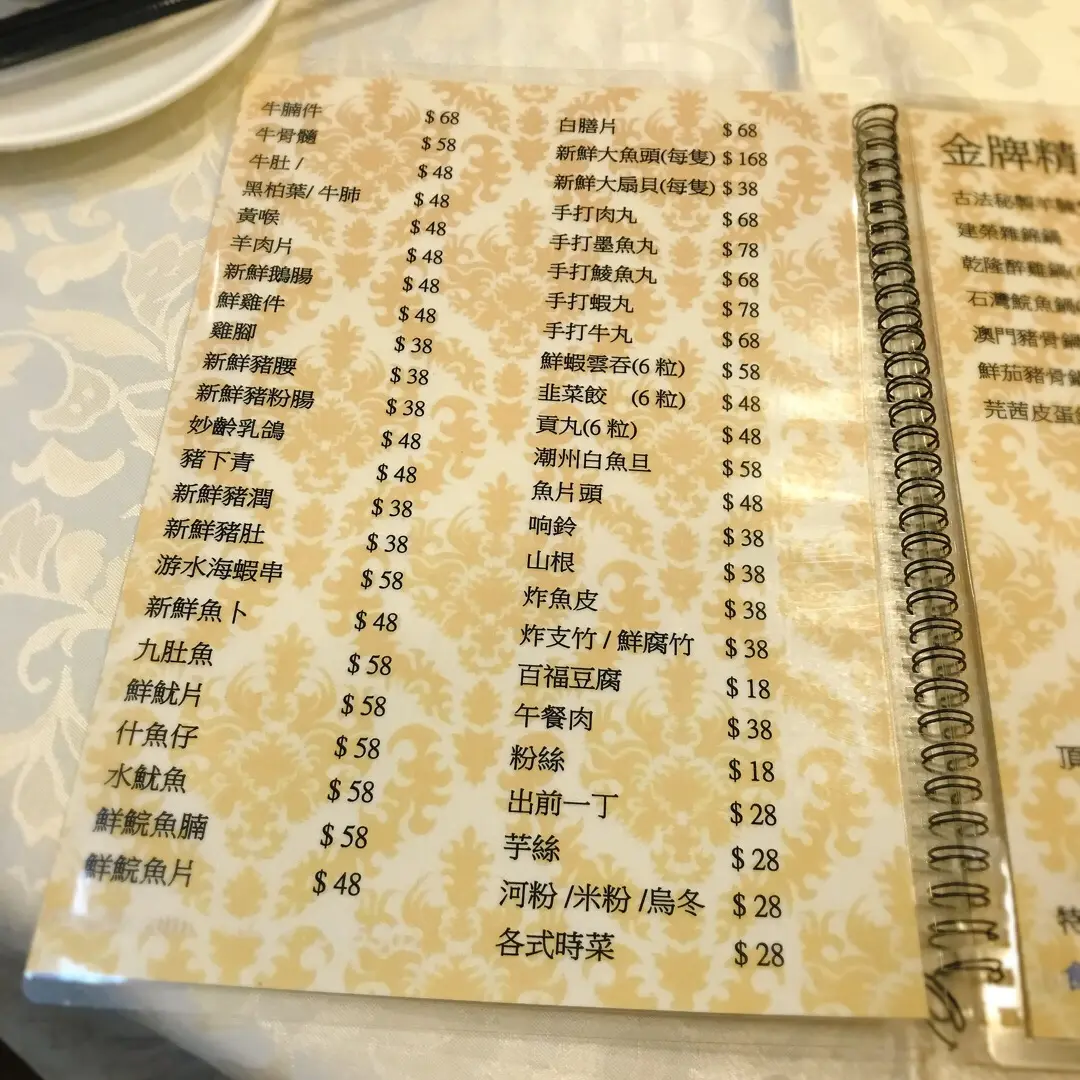 牛腩件 $ 68
牛骨髓 $ 58
牛肚 / $ 48
黑柏葉/ 牛肺 $ 48
黃喉 $ 48
羊肉片 $ 48
新鮮鵝腸 $ 48
鮮雞件 $ 48
雞腳 $ 38
新鮮豬腰 $ 38
新鮮豬粉腸 $ 38
妙齡乳鴿 $ 48
豬下青 $ 48
新鮮豬潤 $ 38
新鮮豬肚 $ 38
游水海蝦串 $ 58
新鮮魚卜 $ 48
九肚魚 $ 58
鮮魷片 $ 58
什魚仔 $ 58
水魷魚 $ 58
鮮鯇魚腩 $ 58
鮮鯇魚片 $ 48
白膳片 $ 68
新鮮大魚頭(每隻) $ 168
新鮮大扇貝(每隻) $ 38
手打肉丸 $ 68
手打墨魚丸 $ 78
手打鯪魚丸 $ 68
手打蝦丸 $ 78
手打牛丸 $ 68
鮮蝦雲吞(6 粒) $ 58
韭菜餃 (6 粒) $ 48
貢丸(6 粒) $ 48
潮州白魚旦 $ 58
魚片頭 $ 48
响鈴 $ 38
山根 $ 38
炸魚皮 $ 38
炸支竹 / 鮮腐竹 $ 38
百福豆腐 $ 18
午餐肉 $ 38
粉絲 $ 18
出前一丁 $ 28
芋絲 $ 28
河粉 /米粉 /烏冬 $ 28
各式時菜 $ 28
金牌精
古法秘製羊
建榮雜錦鍋
乾隆醉雞鍋
石灣鯇魚鍋
澳門豬骨鍋
鮮茄豬骨鍋
芫茜皮蛋
頂
特